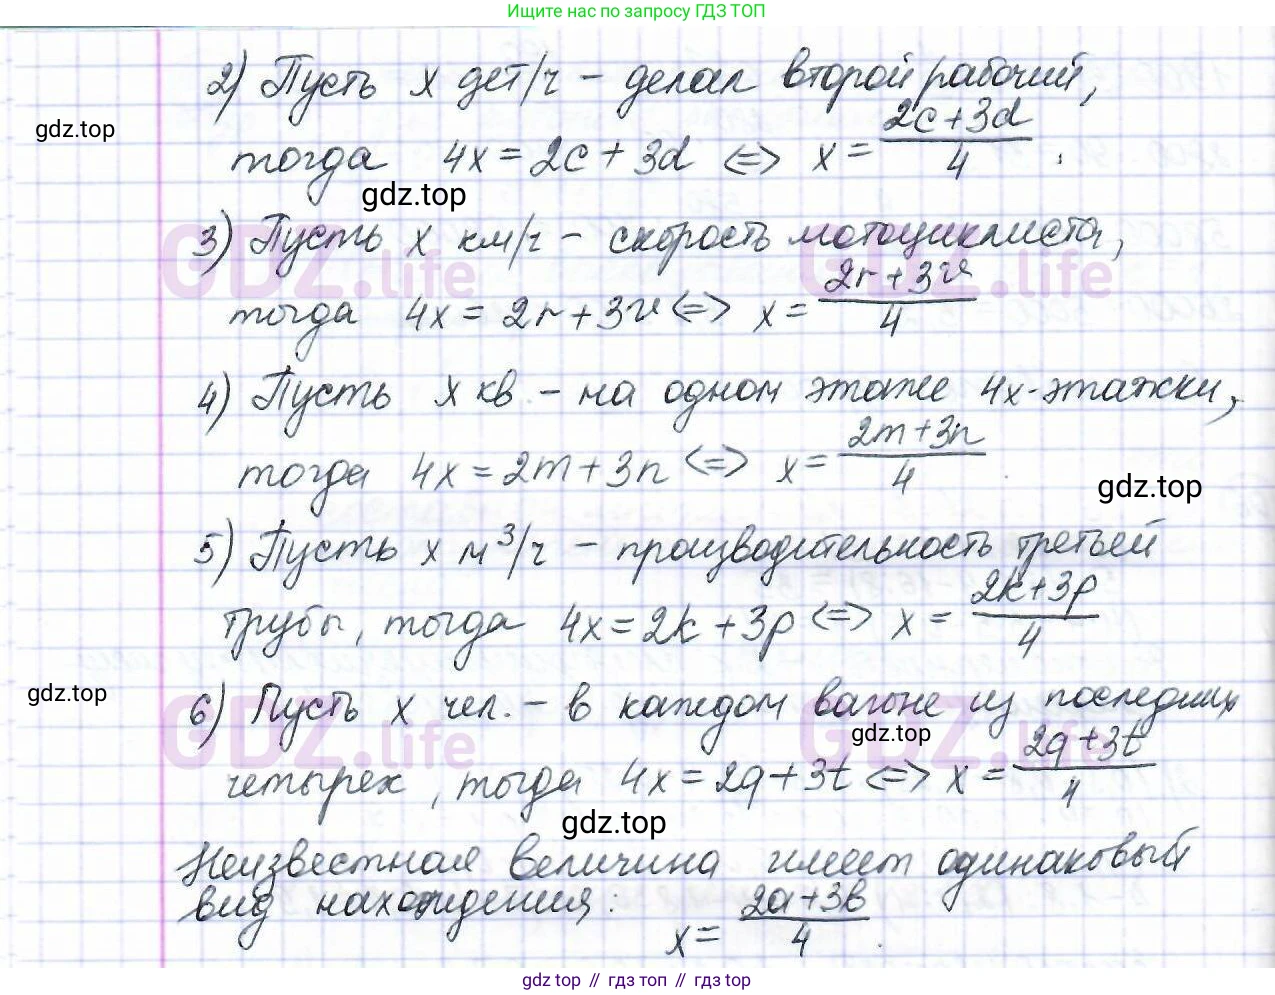 Ищите нас по запросу ГДЗ ТОП
2) Пусть x дет/ч – делал второй рабочий,
gdz.top
тогда 4x = 2c + 3d <=> x = (2c+3d)/4 ;
gdz.top
3) Пусть x км/ч – скорость мотоциклиста,
GDZ.life GDZ.life
тогда 4x = 2r + 3v <=> x = (2r+3v)/4
4) Пусть x кв – на одном этаже 4х-этажки,
тогда 4x = 2m + 3n <=> x = (2m+3n)/4
gdz.top
5) Пусть x м³/ч – производительность третьей
трубы, тогда 4x = 2k + 3p <=> x = (2k+3p)/4
gdz.top
6) Пусть x чел. – в каждом вагоне из последних
GDZ.life GDZ.life
gdz.top
четырех, тогда 4x = 2q + 3t <=> x = (2q+3t)/4
gdz.top
Неизвестная величина имеет одинаковый
вид нахождения:
x = (2a+3b)/4 .
gdz top // гдз топ // gdz top